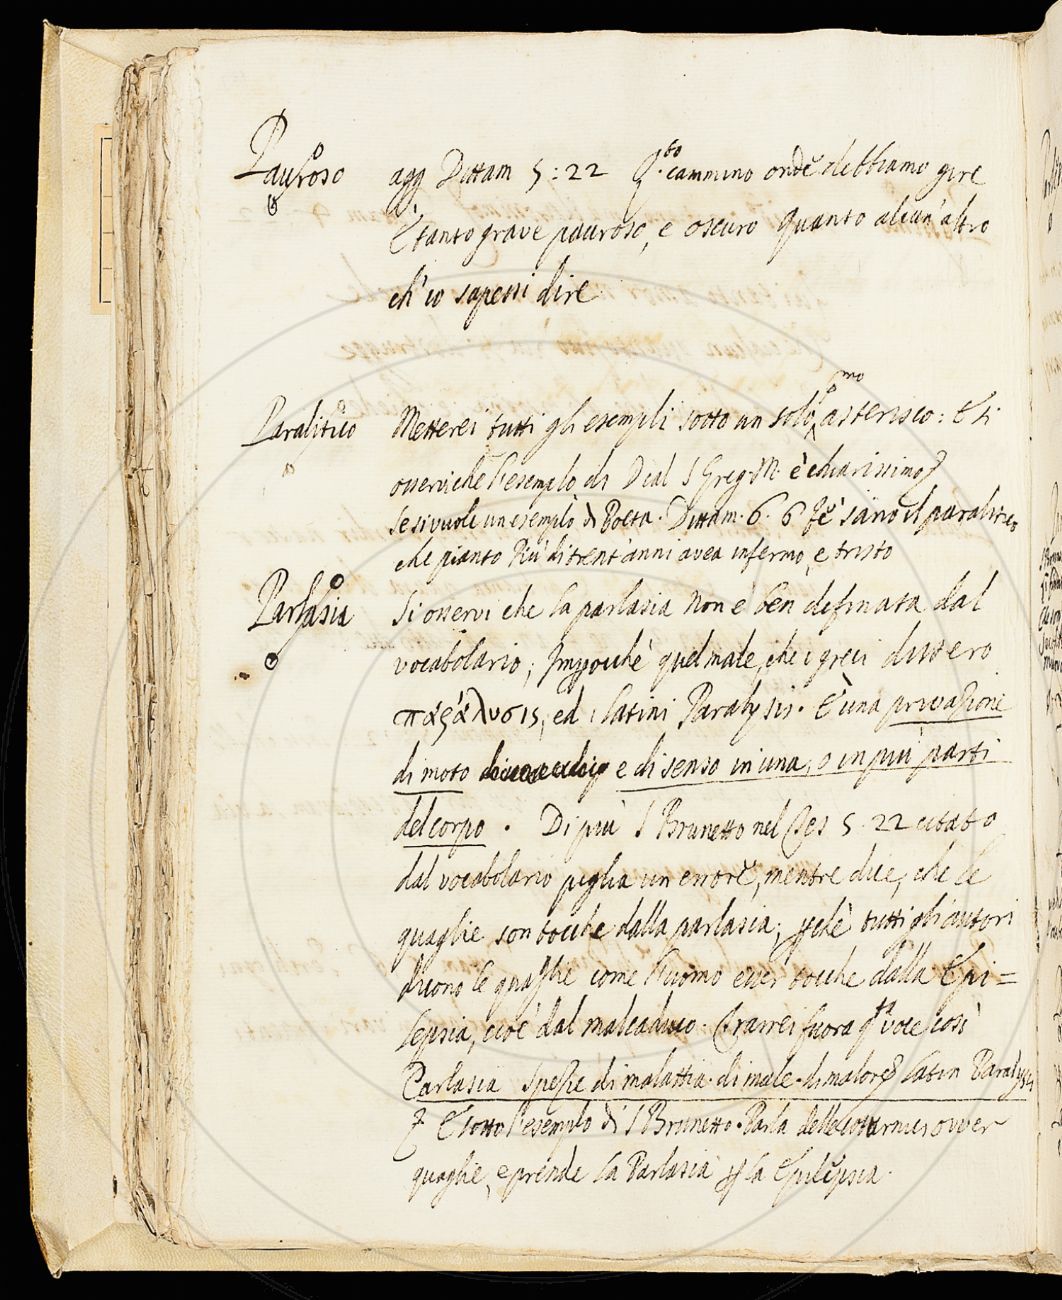 Pauroso agg Dittam 5:22 Q.sto cammino onde debbiamo gire
È tanto grave pauroso, e oscuro quanto alcun'altro
ch'io sapessi dire
Paralitico Metterei tutti gli esempli sotto un solo, asterisco: E si
osservi che l'esemplo di Dial S Greg. M. è chiarissimo
se si vuole un esemplo di Poeta. Dittam. 6. 6 Fè sano il paralitico
che pianto più di trent'anni avea infermo, e tristo
Parlasia Si osservi che la parlasia non è ben definata dal
vocabolario; Impocchè quel male, che i greci dissero
παράλυσις, ed i latini Paralysis. È una privazione
di moto e di senso in una, o in più parti
del corpo. Di più S Brunetto nel Tes 5. 22 citato
dal vocabolario piglia un errore, mentre dice, che le
quaglie son tocche dalla parlasia; tutti gli autori
dicono le quaglie come l'uomo esser tocche dalla Epi=
lepsia, cioè dal malcaduco. Trarrei fuora q.ta voce così
Parlasia Spezie di malattia. di male. di malore latin Paralysis
E sotto l'esemplo di S Brunetto. Parla delle coturnici ovver
quaglie, e prende la Parlasia p la Epilepsia.